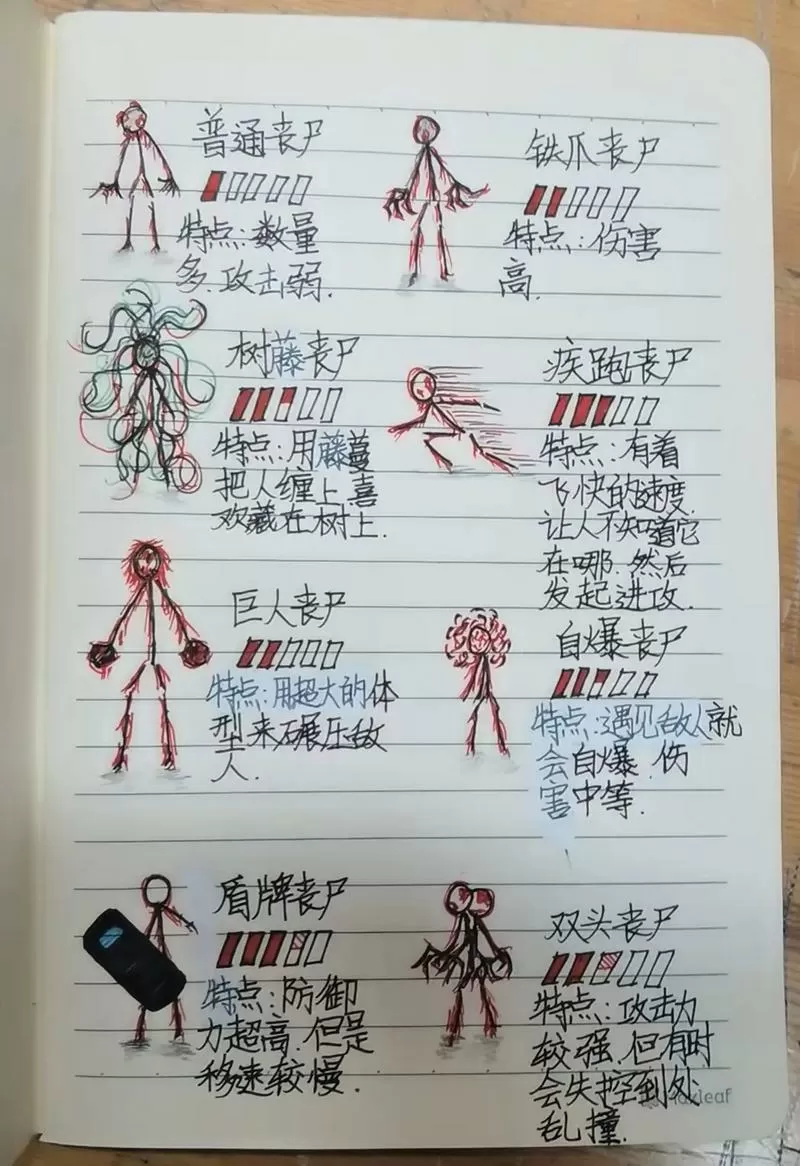 普通丧尸
特点:数量
多.攻击弱.
铁爪丧尸
特点:伤害
高.
树藤丧尸
特点:用藤蔓
把人缠上.喜
欢藏在树上.
疾跑丧尸
特点:有着
飞快的速度.
让人不知道它
在哪.然后
发起进攻.
巨人丧尸
特点:用超大的体
型来碾压敌
人.
自爆丧尸
特点:遇见敌人就
会自爆.伤
害中等.
盾牌丧尸
特点:防御
力超高.但是
移速较慢.
双头丧尸
特点:攻击力
较强.但有时
会失控到处
乱撞.